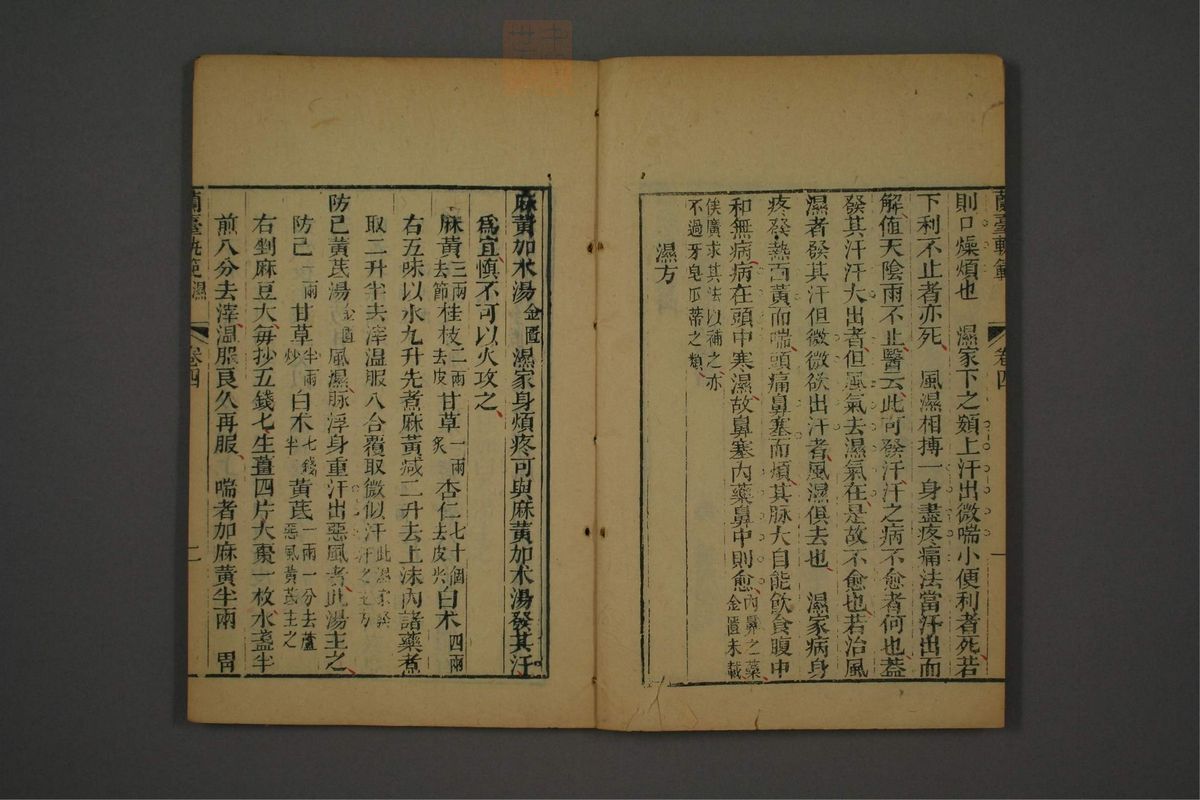 蘭臺軌範　卷四　一
則口燥煩也　濕家下之額上汗出微喘小便利者死若
下利不止者亦死　風濕相搏一身盡疼痛法當汗出而
解值天陰雨不止醫云此可發汗汗之病不愈者何也蓋
發其汗汗大出者但風氣去濕氣在是故不愈也若治風
濕者發其汗但微微欲出汗者風濕俱去也　濕家病身
疼發熱面黃而喘頭痛鼻塞而煩其脉大自能飲食腹中
和無病病在頭中寒濕故鼻塞內藥鼻中則愈內鼻之藥金匱未載
俟廣求其法以補之亦不過牙皂瓜蒂之類
濕方
麻黃加朮湯金匱　濕家身煩疼可與麻黃加朮湯發其汗
為宜慎不可以火攻之
麻黃三兩去節　桂枝二兩去皮　甘草一兩炙　杏仁七十個去皮尖　白朮四兩
右五味以水九升先煮麻黃减二升去上沫內諸藥煮
取二升半去滓溫服八合覆取微似汗此濕家發汗之主方
防己黃芪湯金匱　風濕脉浮身重汗出惡風者此湯主之
防己一兩　甘草半兩炒　白朮七錢半　黃芪一兩一分去蘆惡風黃芪主之
右剉麻豆大每抄五錢匕生薑四片大棗一枚水盞半
煎八分去滓溫服良久再服　喘者加麻黃半兩　胃
蘭臺軌範　濕　卷四　二